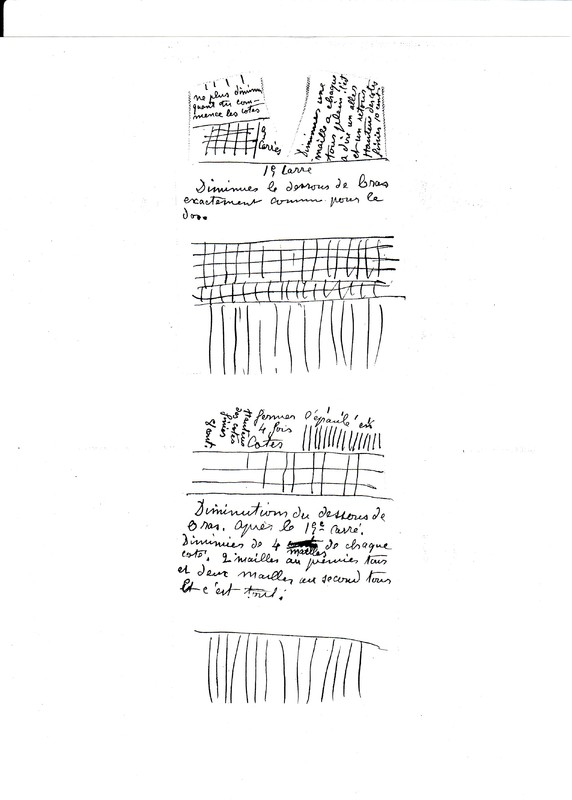 ne plus dimin
quent du com-
mence les cotes
9
Carrés
Diminues une
maille a chaque
tous plein. C'est
a dire un aller
et un retour
Hauteur des cotes
finies 10 cent.
19 Carre
Diminues le dessous de bras
exactement comme pour le
dos.
fermes l'épaule en
4 fois
Cotes
Hauteur
des cotes
finies
Diminutions du dessous de
bras. après le 19e carré.
Diminuées de 4 mailles de chaque
coté. 2 mailles au premies tous
et deux mailles au second tous
Et c'est tout.